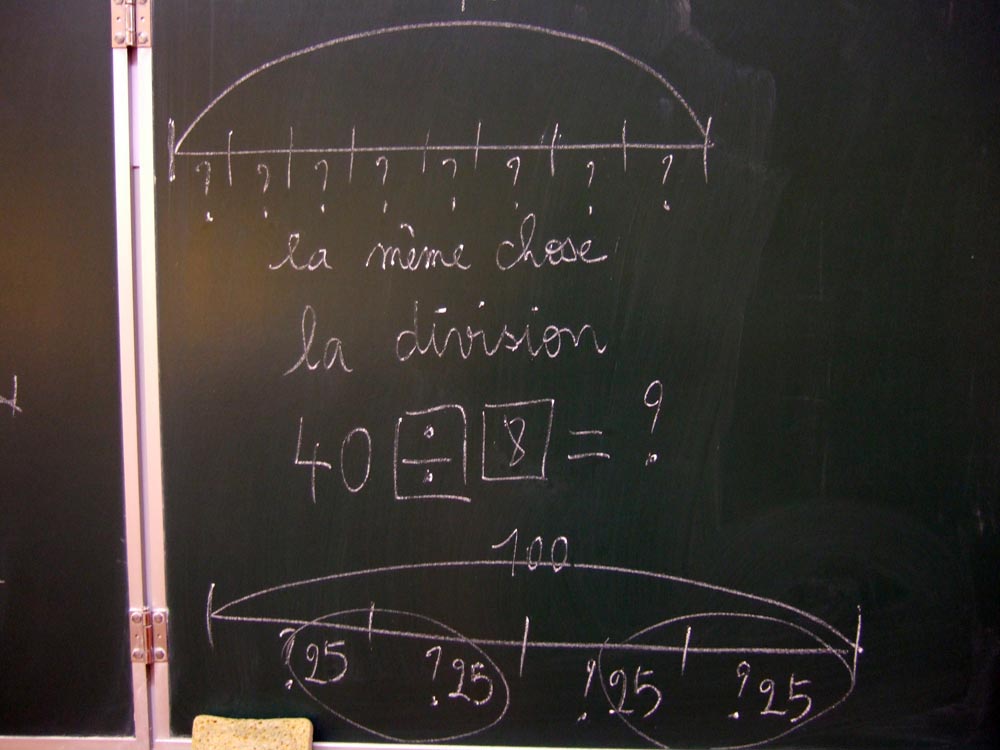 ? ? ? ? ? ? ? ?
la même chose
la division
40 ÷ 8 = ?
100
? 25 ? 25 ? 25 ? 25